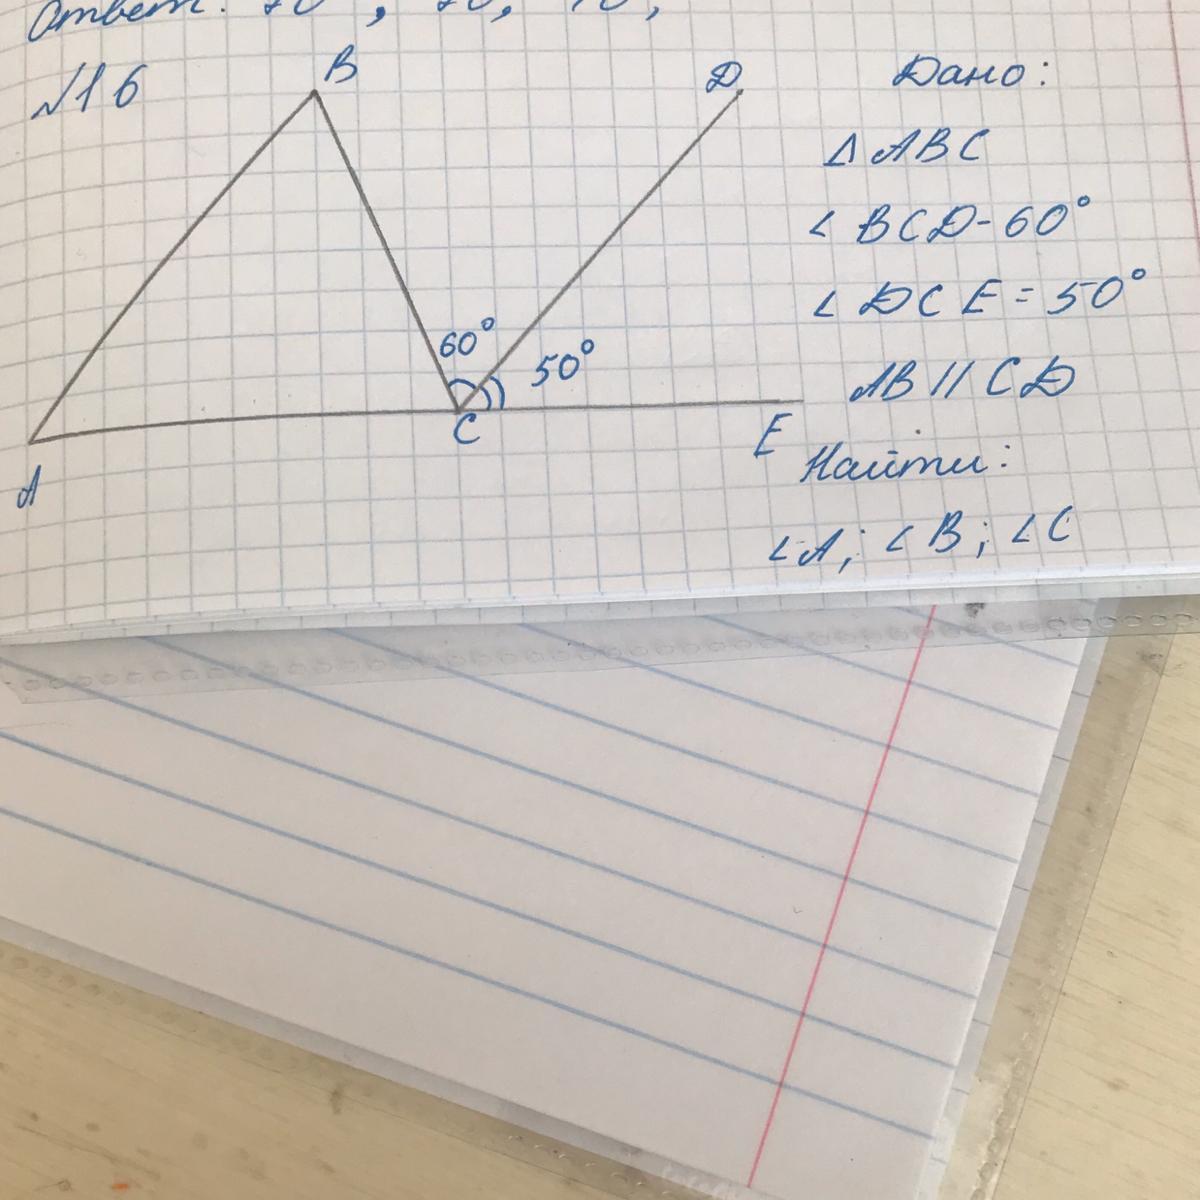 Ответ:
№16
B
D
60°
50°
C
E
A
Дано:
Δ ABC
∠ BCD-60°
∠ DCE = 50°
AB || CD
Найти:
∠A; ∠B; ∠C